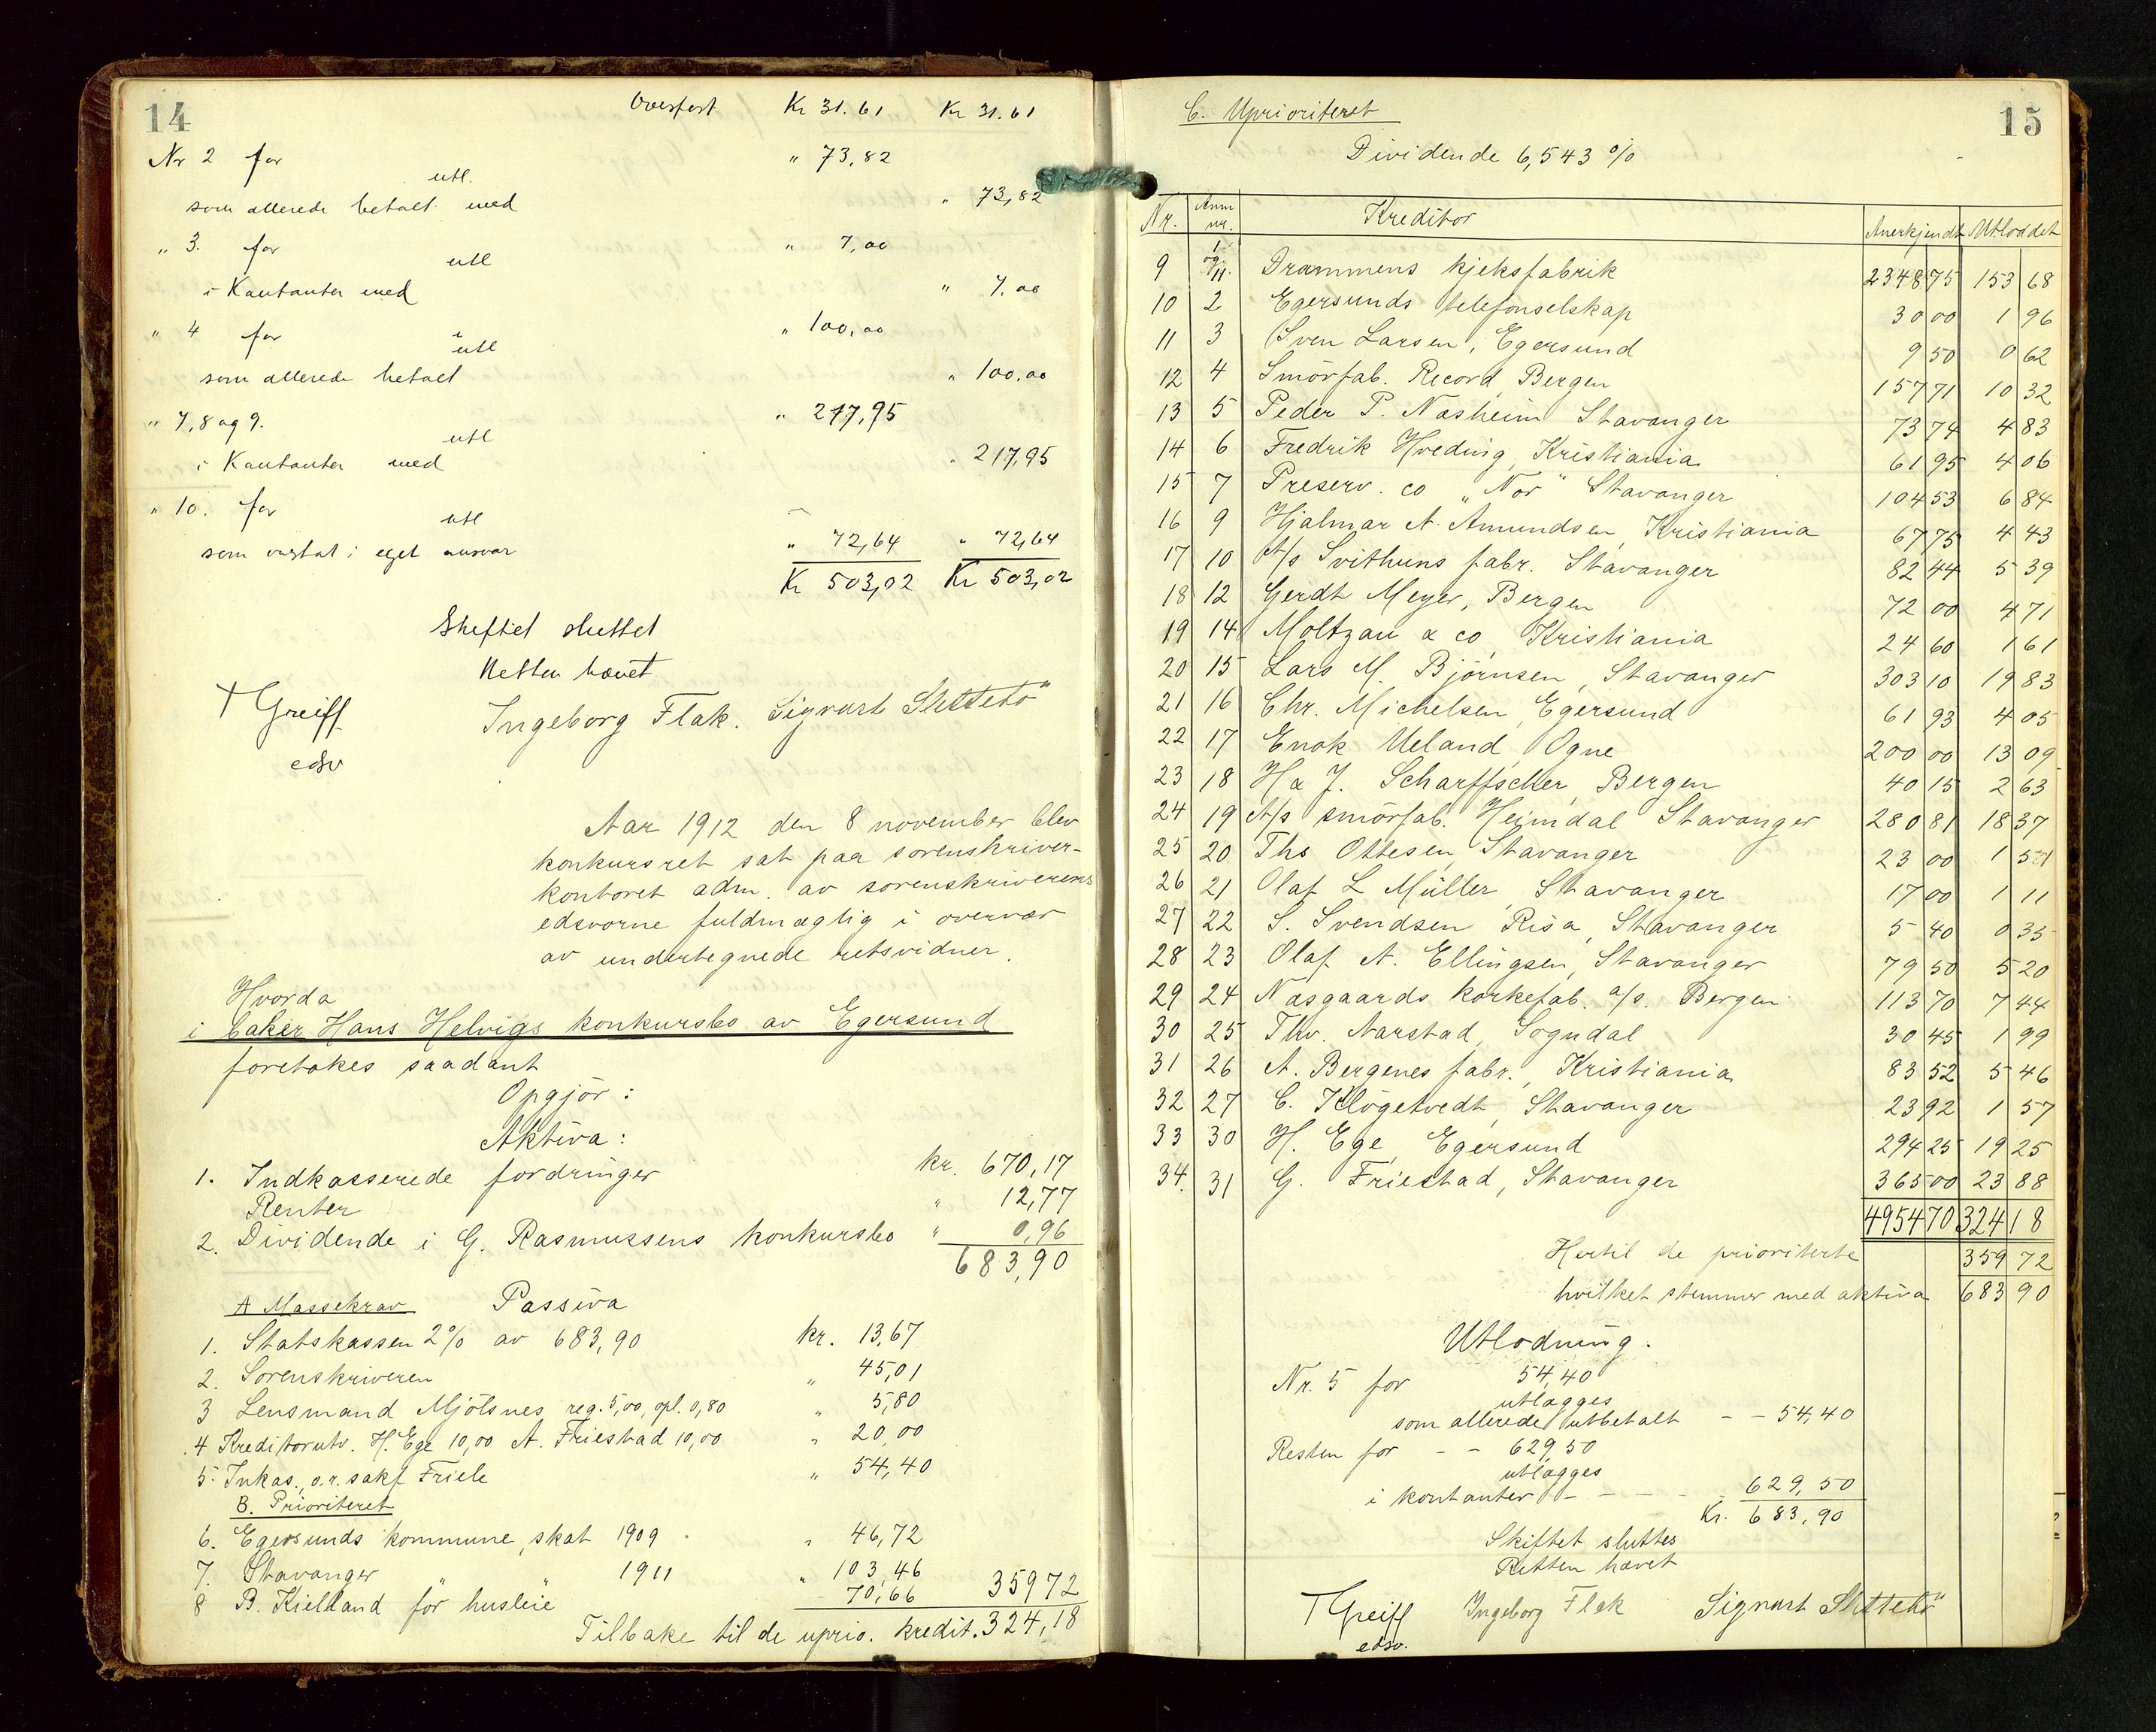 14
Overført Kr 31.61 Kr 31.61
Nr 2 for " 73,82
utl.
som allerede betalt med " 73,82
" 3. for " 7,00
utl
i Kontanter med " 7,00
" 4 for " 100,00
utl
som allerede betalt " 100,00
" 7,8 og 9. " 217,95
utl
i Kontanter med " 217,95
" 10. for
utl " 72,64 " 72,64
som overtat i eget ansvar
Kr 503,02 Kr 503,02
Skiftet sluttet
Retten hævet
T Greiff Ingeborg Flak. Sigvart Slettebö
edsv
Aar 1912 den 8 november blev
konkursret sat paa sorenskriver-
kontoret adm. av sorenskriverens
edsvorne fuldmægtig i overvær
av undertegnede retsvidner.
Hvorda
i baker Hans Helvigs konkursbo av Egersund
foretokes saadant
Opgjör:
Aktiva:
1. Indkasserede fordringer kr. 670,17
Renter " 12,77
2. Dividende i G. Rasmussens konkursbo " 0,96
683,90
A Massekrav Passiva
1. Statskassen 2% av 683,90 kr. 13,67
2. Sorenskriveren " 45,01
3 Lensmand Mjölsnes reg. 5,00, opl. 0,80 " 5,80
4 Kreditorutv. H. Ege 10,00 A. Friestad 10,00 " 20,00
5. Inkas., o.r. sakf Friele " 54,40
B. Prioriteret
6. Egersunds kommune, skat 1909 " 46,72
7. Stavanger " " 1911 " 103,46
8 B. Kielland för husleie 70,66 359 72
Tilbake til de uprio. kredit. 324,18
15
C. Uprioriteret
Dividende 6,543 %
Nr. Anm nr. Kreditor Anerkjendt Utloddet
9 1 og 11. Drammens kjeksfabrik 2348 75 153 68
10 2 Egersunds telefonselskap 30 00 1 96
11 3 Sven Larsen, Egersund 9 50 0 62
12 4 Smörfab. Record, Bergen 157 71 10 32
13 5 Peder P. Næsheim Stavanger 73 74 4 83
14 6 Fredrik Hveding, Kristiania 61 95 4 06
15 7 Preserv. co "Nor" Stavanger 104 53 6 84
16 9 Hjalmar A. Amundsen, Kristiania 67 75 4 43
17 10 A/s Svithuns fabr. Stavanger 82 44 5 39
18 12 Gerdt Meyer, Bergen 72 00 4 71
19 14 Moltzau & co, Kristiania 24 60 1 61
20 15 Lars M. Björnsen, Stavanger 303 10 19 83
21 16 Chr. Michelsen, Egersund 61 93 4 05
22 17 Enok Ueland, Ogne 200 00 13 09
23 18 H & J. Scharffscher, Bergen 40 15 2 63
24 19 A/s smörfab. Heimdal Stavanger 280 81 18 37
25 20 Ths Ottesen, Stavanger 23 00 1 51
26 21 Olaf L Müller, Stavanger 17 00 1 11
27 22 S. Svendsen Risa, Stavanger 5 40 0 35
28 23 Olaf A. Ellingsen, Stavanger 79 50 5 20
29 24 Næsgaards korkefab. a/s. Bergen 113 70 7 44
30 25 Thv. Aarstad, Sogndal 30 45 1 99
31 26 A. Bergenes fabr., Kristiania 83 52 5 46
32 27 C. Klögetvedt, Stavanger 23 92 1 57
33 30 H. Ege, Egersund 294 25 19 25
34. 31 G. Friestad, Stavanger 365 00 23 88
4954 70 324 18
Hertil de prioriterte 359 72
hvilket stemmer med aktiva 683 90
Utlodning.
Nr. 5 for 54,40
utlægges
som allerede utbetalt - - 54,40
Resten for - - 629,50
utlægges
i kontanter - - - - 629,50
Kr. 683,90
Skiftet sluttes
Retten hævet
T Greiff Ingeborg Flak Sigvart Slettebö
edsv.